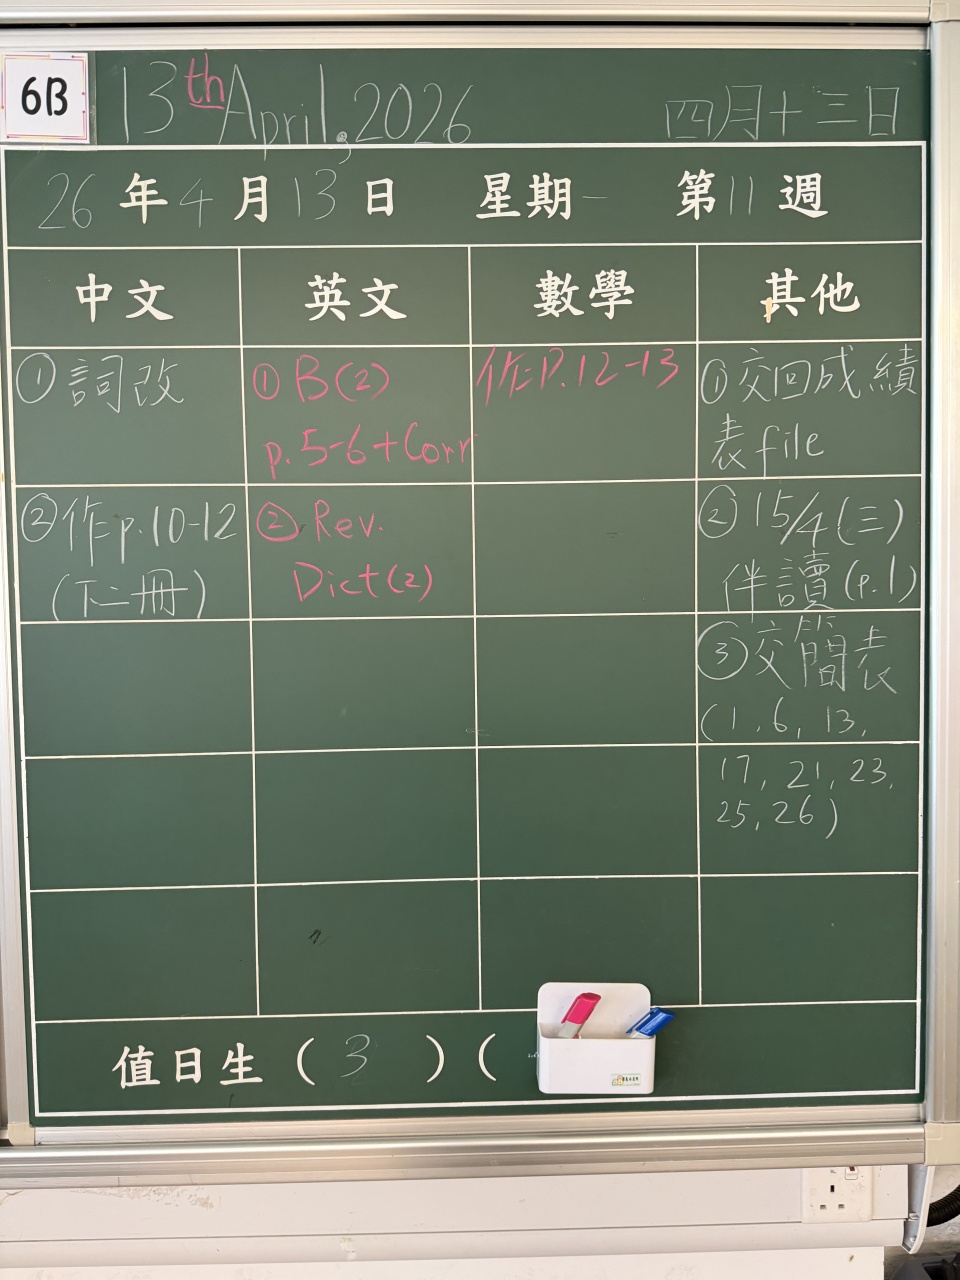 6B
13th April, 2026 四月十三日
26年4月13日 星期一 第11週
中文 英文 數學 其他
①詞改
②作p.10-12
(下二冊)
①B(2)
p.5-6+Corr
②Rev.
Dict(2)
作P.12-13
①交回成績
表file
②15/4(三)
伴讀(p.1)
③交簡表
(1,6,13,
17,21,23,
25,26)
值日生(3)(